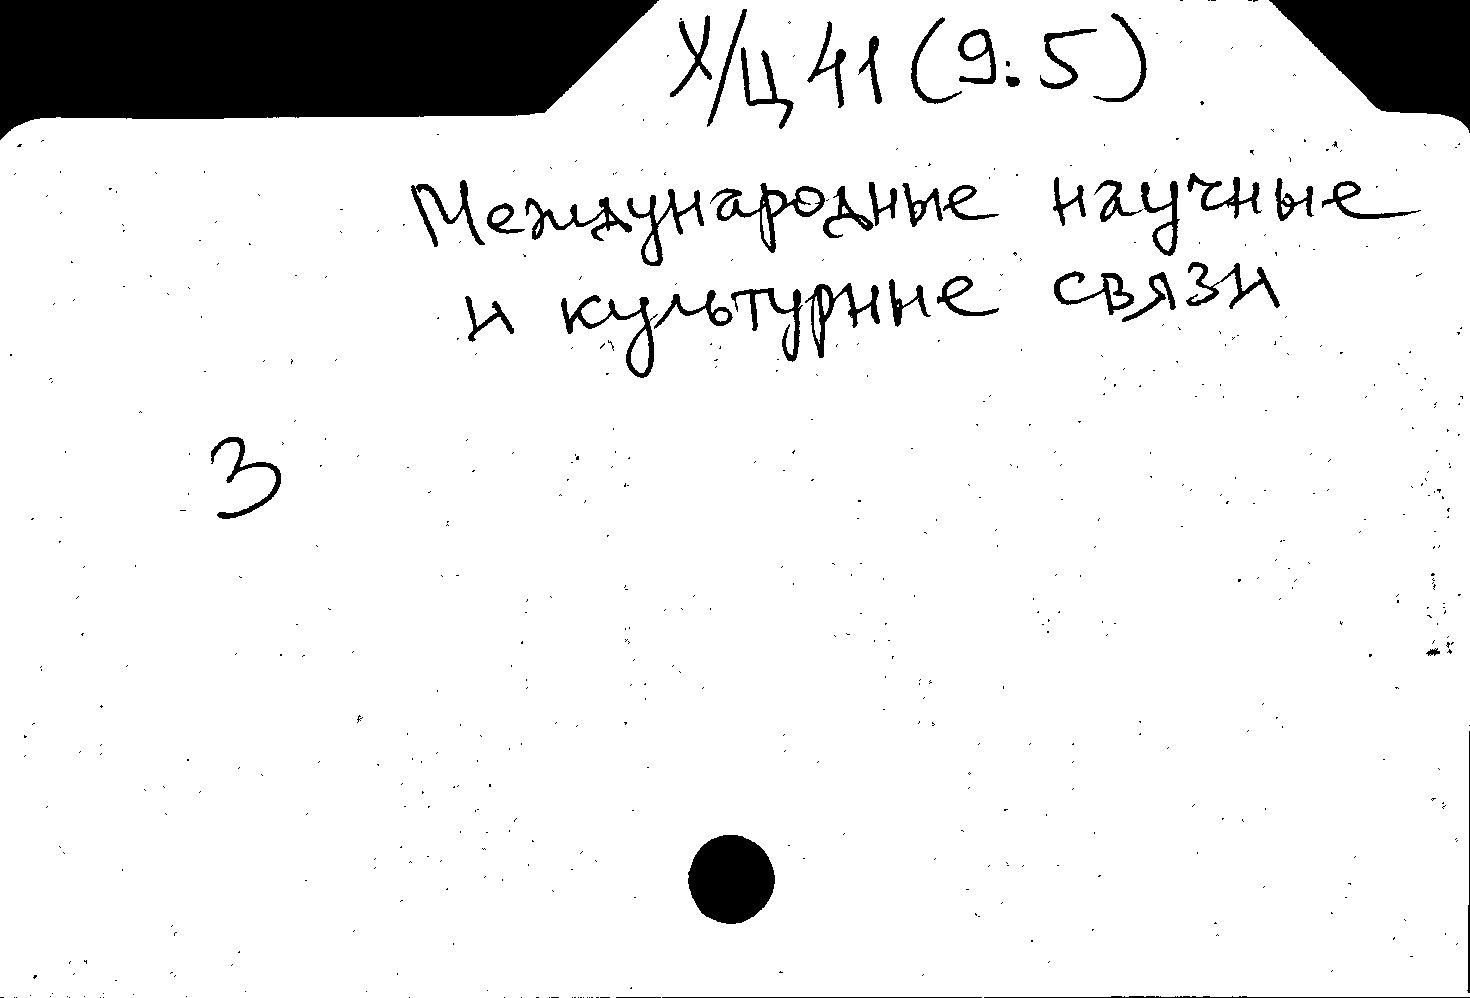 Х/Ц 41 (9:5)
Международные научные
и культурные связи
3